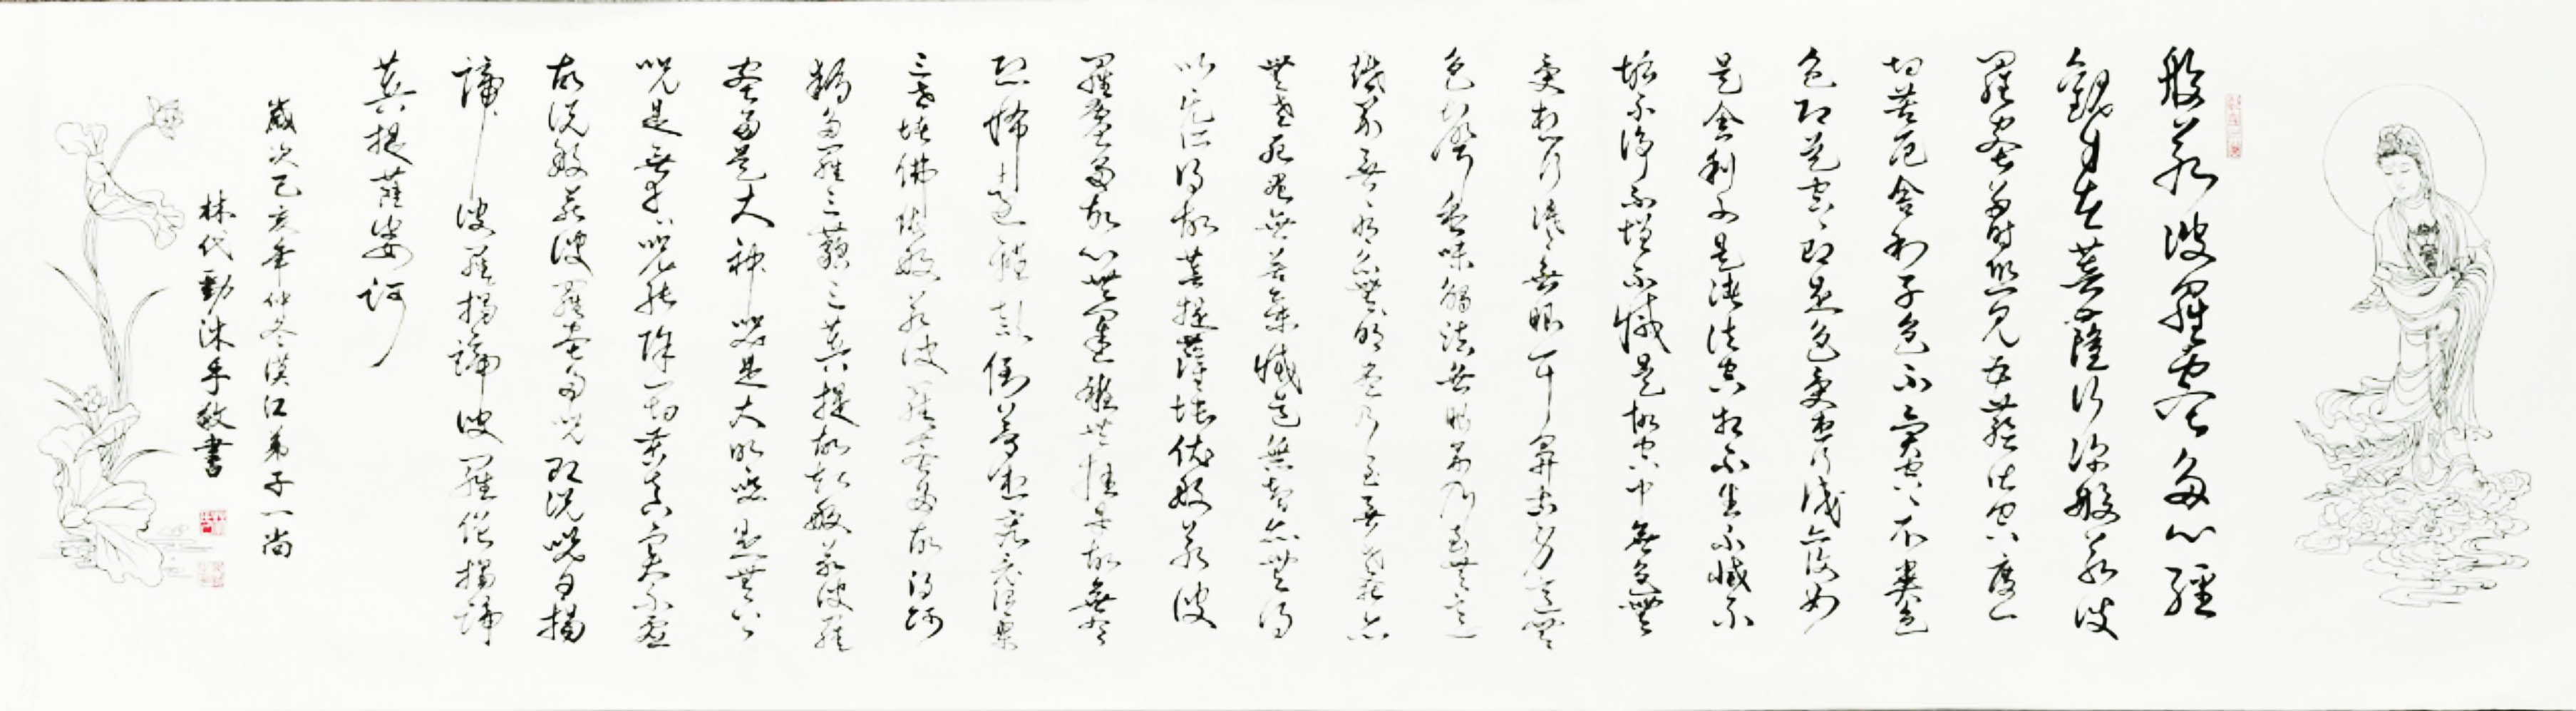 般若波羅蜜多心經
觀自在菩薩行深般若波
羅蜜多時照見五蘊皆空度一
切苦厄舍利子色不異空空不異色
色即是空空即是色受想行識亦復如
是舍利子是諸法空相不生不滅不
垢不淨不增不減是故空中無色無
受想行識無眼耳鼻舌身意無
色聲香味觸法無眼界乃至無意
識界無無明亦無無明盡乃至無老死亦
無老死盡無苦集滅道無智亦無得
以無所得故菩提薩埵依般若波
羅蜜多故心無罣礙無罣礙故無有
恐怖遠離顛倒夢想究竟涅槃
三世諸佛依般若波羅蜜多故得阿
耨多羅三藐三菩提故知般若波羅
蜜多是大神咒是大明咒是無上
咒是無等等咒能除一切苦真實不虛
故說般若波羅蜜多咒即說咒曰揭
諦波羅揭諦波羅僧揭諦
菩提薩婆訶
歲次己亥年仲冬漢江弟子一尚
林代勤沐手敬書